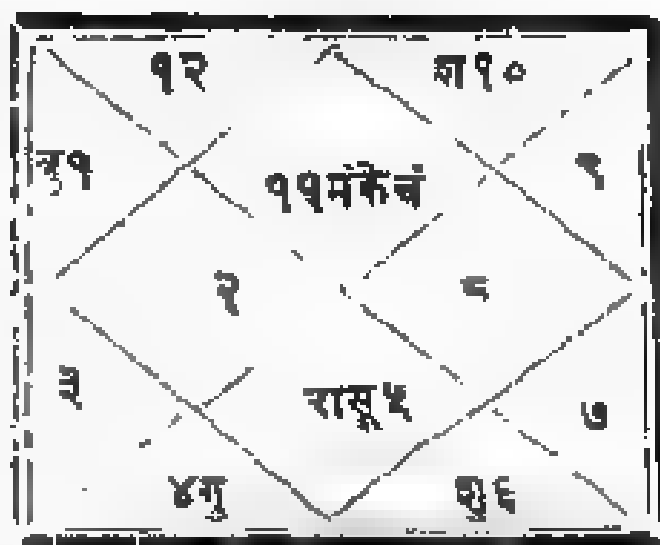 १२ श१०
बु१ ११मंकेचं ९
२ ८
३ रासू५ ७
४गु शु६